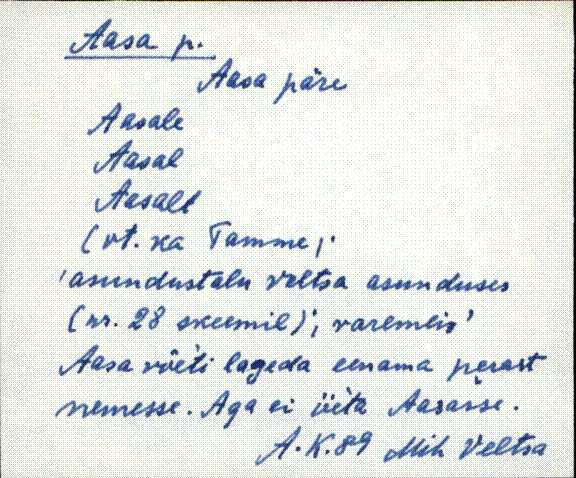 Aasa p.
Aasa päre
Aasale
Aasal
Aasalt
(vt. ka Tamme;
'asundustalu Veltsa asunduses
(nr. 28 skeemil);
Aasa võeti lageda eenama perast
nemesse. Aga ei üeta Aasasse.
A.K.89 Mih Veltsa